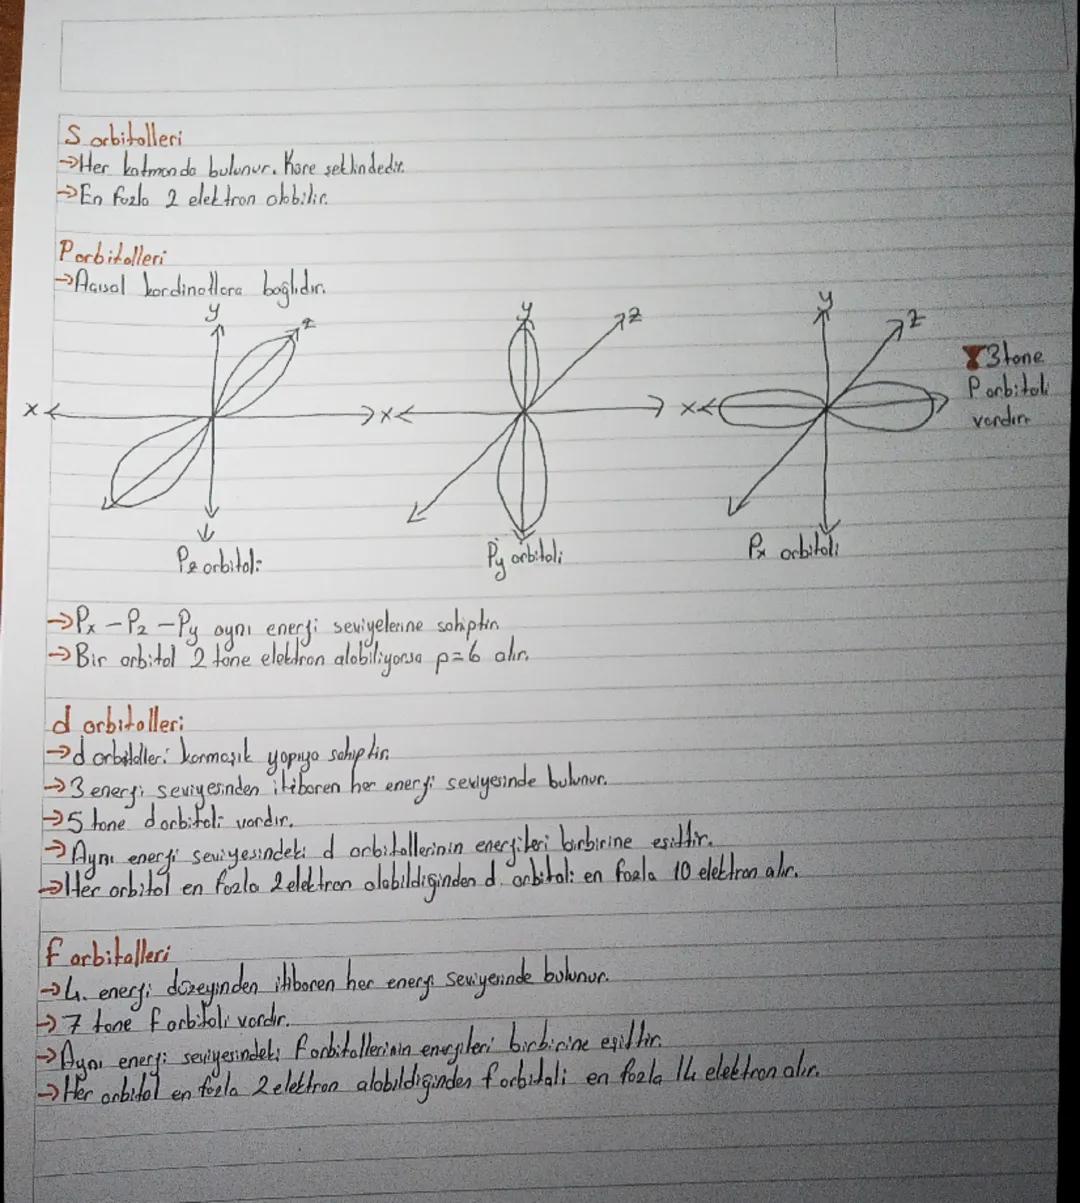 S orbitalleri
→Her katmanda bulunur. Kare şeklindedir.
→En fazla 2 elektron alabilir.
P orbitalleri
→Açısal kordinatlara bağlıdır.
y
z
x
Pz orbitali
y
z
x
Py orbitali
y
z
x
Px orbitali
3 tane
P orbitali
vardır
→Px - Pz - Py aynı enerji seviyelerine sahiptir.
→Bir orbital 2 tane elektron alabiliyorsa p=6 alır.
d orbitalleri
→d orbitalleri karmaşık yapıya sahiptir.
→3 enerji seviyesinden itibaren her enerji seviyesinde bulunur.
→5 tane d orbitali vardır.
→Aynı enerji seviyesindeki d orbitallerinin enerjileri birbirine eşittir.
→Her orbital en fazla 2 elektron alabildiğinden d orbitali en fazla 10 elektron alır.
f orbitalleri
→4. enerji düzeyinden itibaren her enerji seviyesinde bulunur.
→7 tane f orbitali vardır.
→Aynı enerji seviyesindeki f orbitallerinin enerjileri birbirine eşittir.
→Her orbital en fazla 2 elektron alabildiğinden f orbitali en fazla 14 elektron alır.